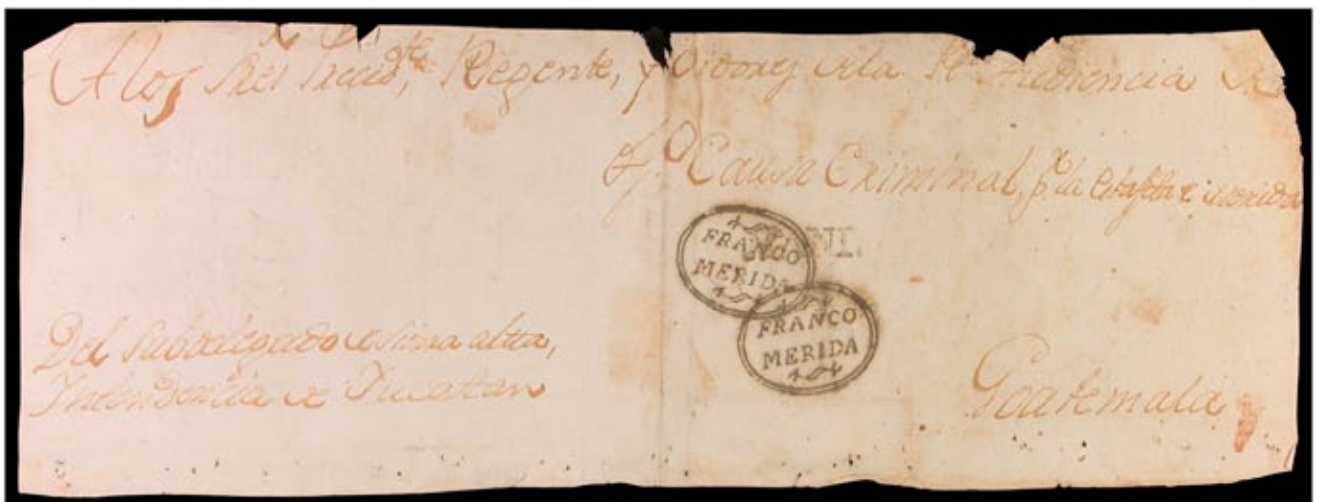 A los Sres Presid.te Regente, y Oidores de la R.l Audiencia
Causa Criminal, p.r la Estafeta de Merida
FRANCO
MERIDA
FRANCO
MERIDA
Del Subdelegado de Sierra alta,
Intendencia de Yucatan
Goatemala